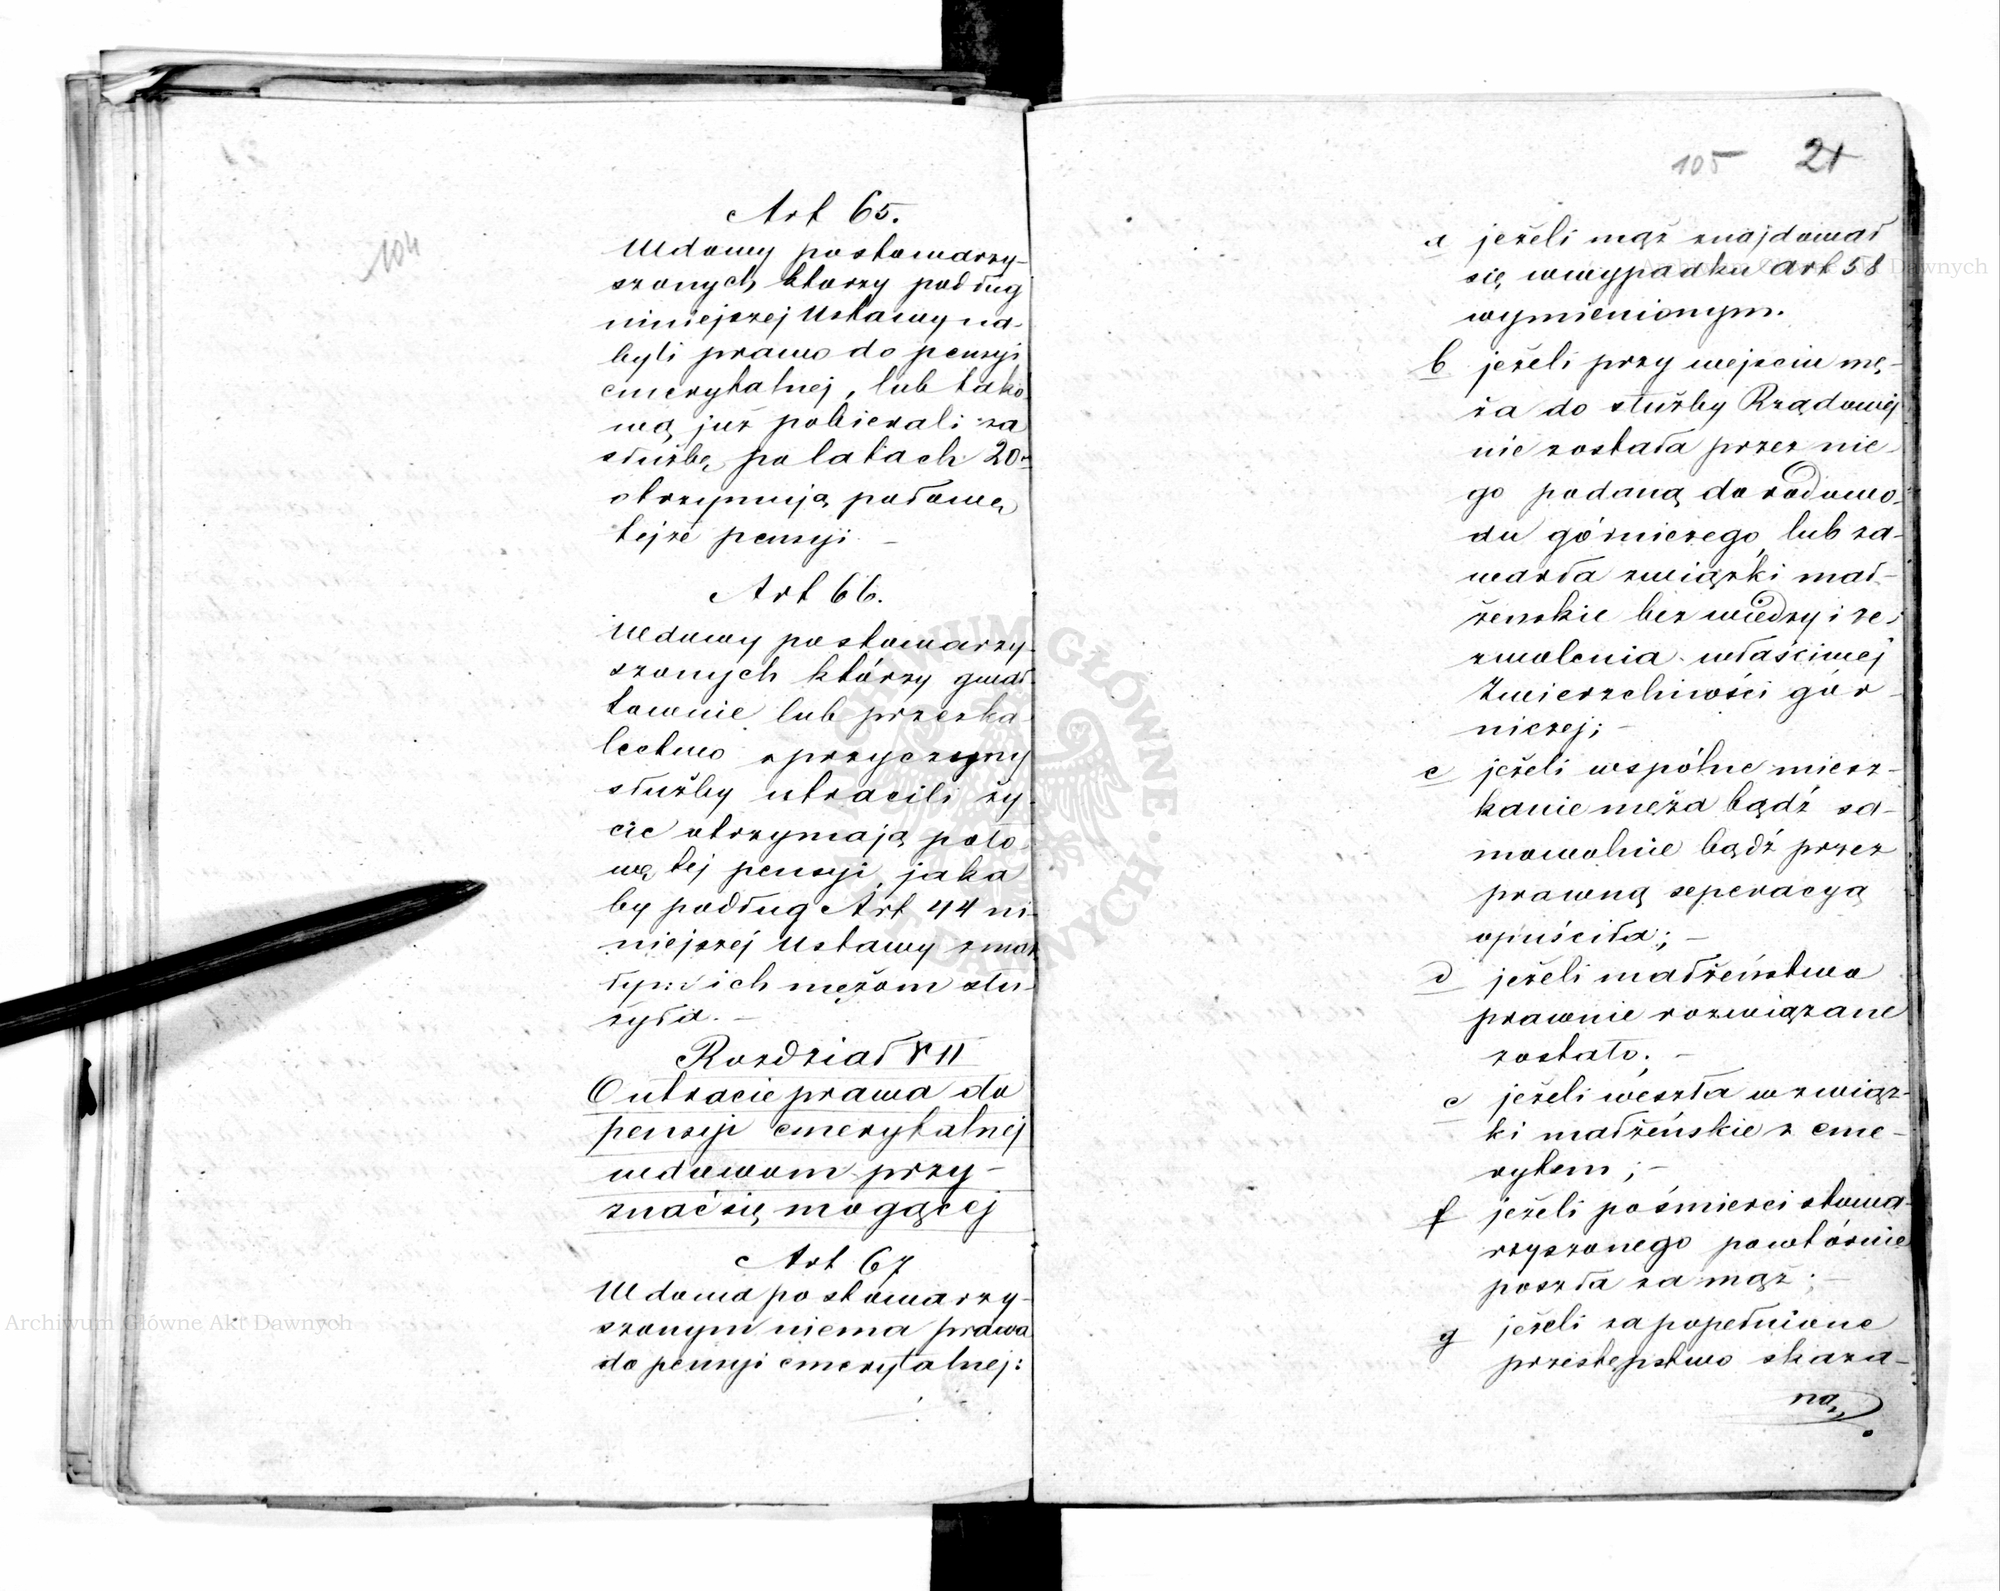 104
Art 65.
Wdowy po stowarzy-
szonych którzy podług
niniejszej Ustawy na-
byli prawo do pensyi
emerytalnej, lub tako-
wą już pobierali za
służbę po latach 20
otrzymują połowę
tejże pensyi —
Art 66.
Wdowy po stowarzy-
szonych którzy gwał-
townie lub przez ka-
lectwo z przyczyny
służby utracili ży-
cie otrzymają poło-
wę tej pensyi, jaka
by podług Art 44 ni-
niejszej Ustawy zmar-
łym ich mężom słu-
żyła. —
Rozdział VII
O utracie prawa do
pensyi emerytalnej
wdowom przy-
znać się mogącej
Art 67
Wdowa po stowarzy-
szonym niema prawa
do pensyi emerytalnej:
105 21
a jeżeli mąż znajdował
się w wypadku Art 58
wymienionym.
b jeżeli przy wejściu mę-
ża do służby Rządowej
nie została przez nie-
go podaną do rodowo-
du górniczego, lub za-
warła związki mał-
żeńskie bez wiedzy i ze-
zwolenia właściwej
Zwierzchności gór-
niczej; —
c jeżeli wspólne miesz-
kanie męża bądź sa-
mowolnie bądź przez
prawną seperacyą
opuściła; —
d jeżeli małżeństwo
prawnie rozwiązane
zostało; —
e jeżeli weszła w związ-
ki małżeńskie z eme-
rytem; —
f jeżeli po śmierci stowa-
rzyszonego powtórnie
poszła za mąż; —
g jeżeli za popełnione
przestępstwo skaza-
ną
Archiwum Główne Akt Dawnych
Archiwum Główne Akt Dawnych
ARCHIWUM GŁÓWNE AKT DAWNYCH